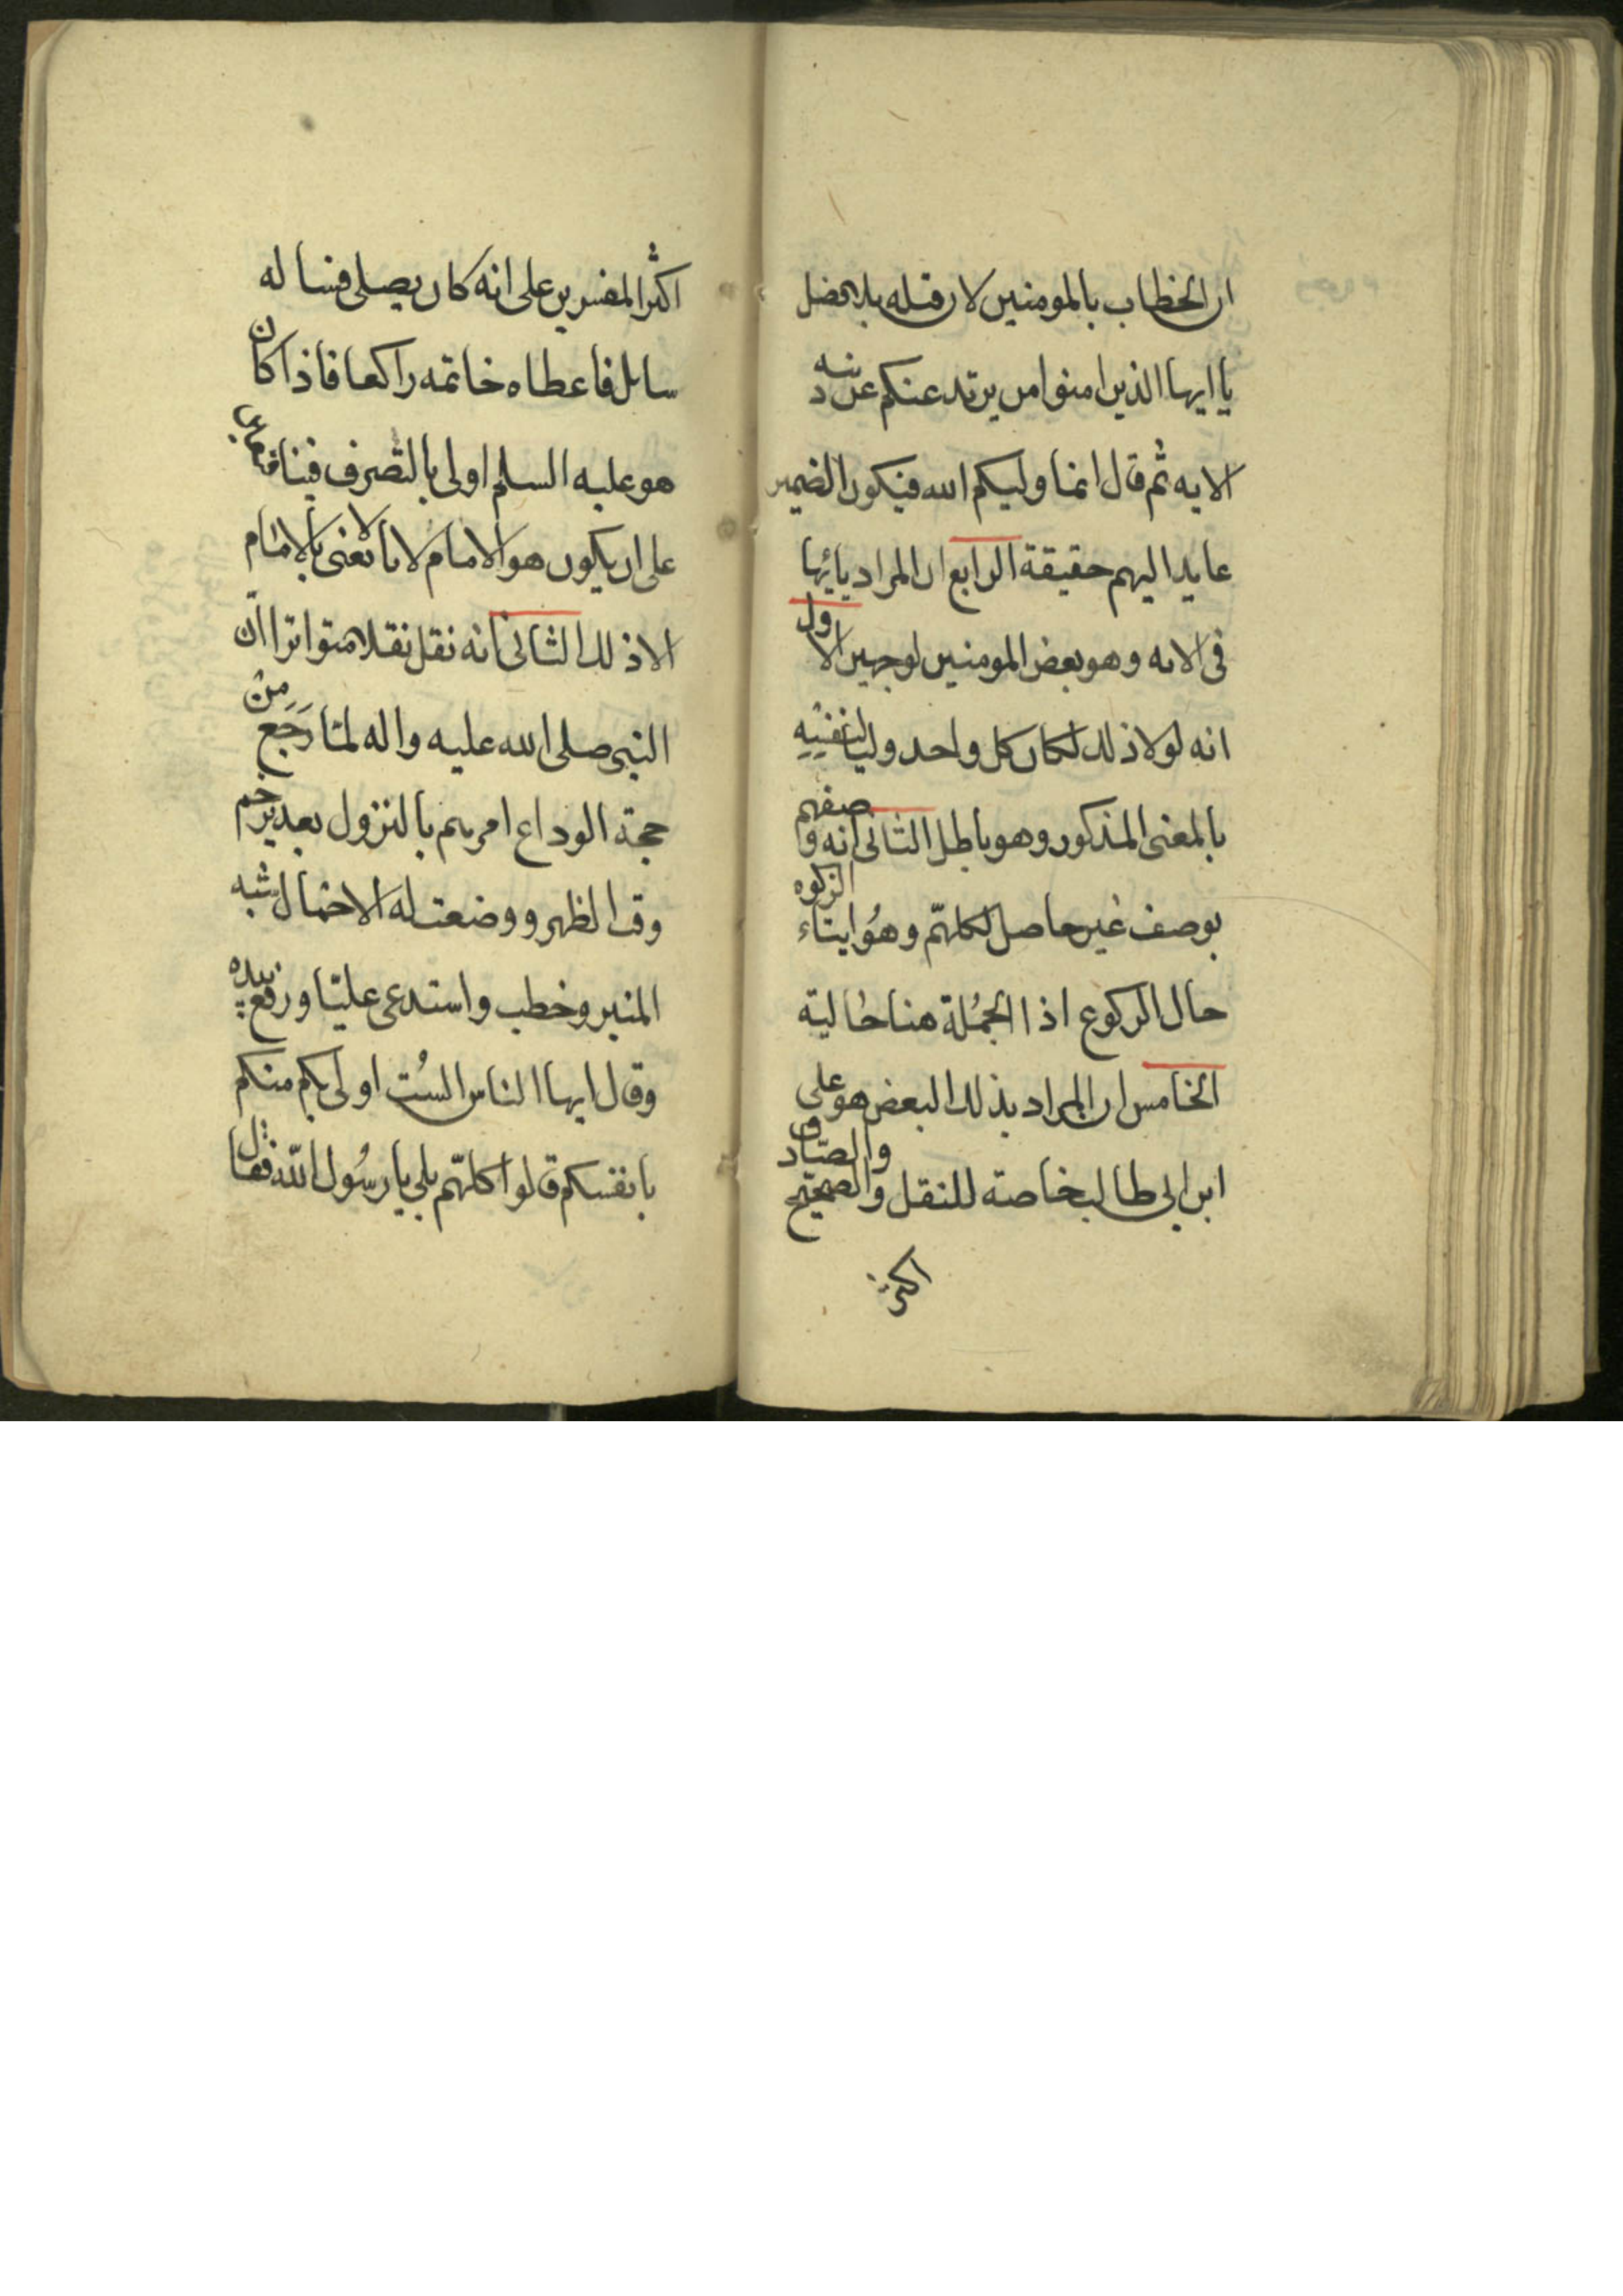 ان الخطاب بالمومنين لان قبله بلا فصل
يا ايها الذين امنوا من يرتد عنكم عن دينه
الايه ثم قال انما وليكم الله فيكون الضمير
عايدا اليهم حقيقة الرابع ان المراد
فى الايه وهو بعض المومنين لوجهين الاول
انه لولا ذلك لكان كل واحد وليا لنفسه
بالمعنى المذكور وهو باطل الثانى انه وصفهم
بوصف غير حاصل لكلهم وهو ايتاء الزكوه
حال الركوع اذ الجملة هنا حالية
الخامس ان المراد بذلك البعض هو على
ابن ابى طالب خاصة للنقل الصحيح والصادق
اكثر
اكثر المفسرين على انه كان يصلى فساله
سايل فاعطاه خاتمه راكعا فاذا كان
هو عليه السلم اولى بالتصرف فينا
على ان يكون هو الامام لانا لا نعنى بالامام
الا ذلك الثانى انه نقل نقلا متواترا ان
النبى صلى الله عليه واله لما رجع من
حجة الوداع امرهم بالنزول بغدير خم
وقت الظهر ووضعت له الاحمال شبه
المنبر وخطب واستدعى عليا ورفع بيده
وقال ايها الناس الست اولى بكم منكم
بانفسكم قالوا كلهم بلى يا رسول الله فقال